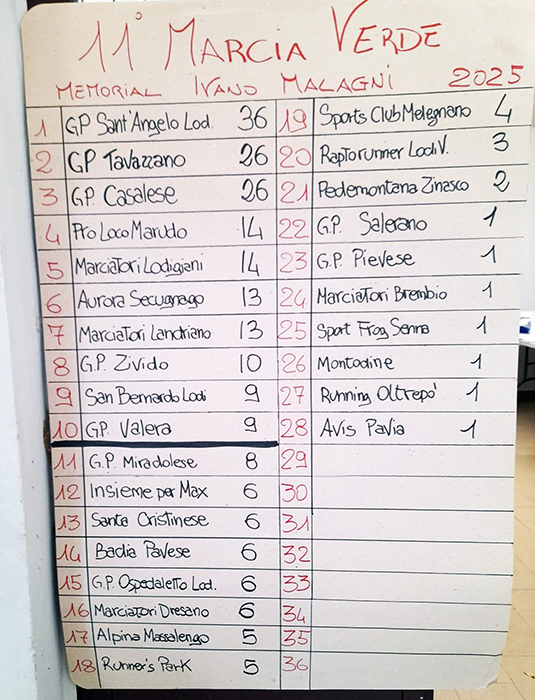 11° MARCIA VERDE
MEMORIAL IVANO MALAGNI 2025
1 GP Sant'Angelo Lod. 36
2 GP Tavazzano 26
3 GP. Casalese 26
4 Pro Loco Marudo 14
5 Marciatori Lodigiani 14
6 Aurora Secugnago 13
7 Marciatori Landriano 13
8 G.P. Zivido 10
9 San Bernardo Lodi 9
10 GP. Valera 9
11 G.P. Miradolese 8
12 Insieme per Max 6
13 Santa Cristinese 6
14 Badia Pavese 6
15 G.P. Ospedaletto Lod. 6
16 Marciatori Dresano 6
17 Alpina Massalengo 5
18 Runner's Park 5
19 Sports Club Melegnano 4
20 Raptorunner Lodi V. 3
21 Pedemontana Zinasco 2
22 G.P. Salerano 1
23 G.P. Pievese 1
24 Marciatori Brembio 1
25 Sport Frog Senna 1
26 Montodine 1
27 Running Oltrepò 1
28 Avis Pavia 1
29
30
31
32
33
34
35
36